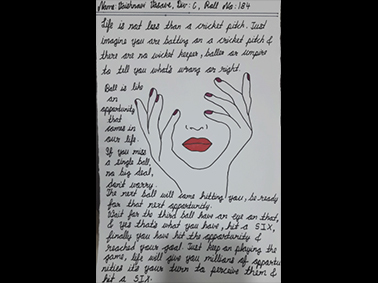 Name: Vaishnavi Vasave, Div: C, Roll No: 184
Life is not less than a cricket pitch. Just
imagine you are batting on a cricket pitch &
there are no wicket keeper, baller or umpire
to tell you what's wrong or right.
Ball is like
an
opportunity
that
comes in
our life.
If you miss
a single ball,
no big deal,
don't worry.
The next ball will come hitting you, be ready
for that next opportunity.
Wait for the third ball have an eye on that,
& yes that's what you have, hit a SIX,
finally you have hit the opportunity &
reached your goal. Just keep on playing the
game, life will give you millions of opportu
nities it's your turn to perceive them &
hit a SIX.